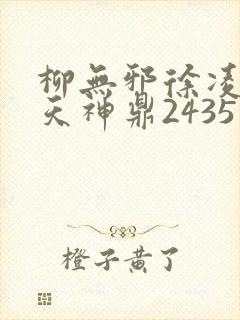 柳無邪徐凌
天神鼎2435
橙子黄了